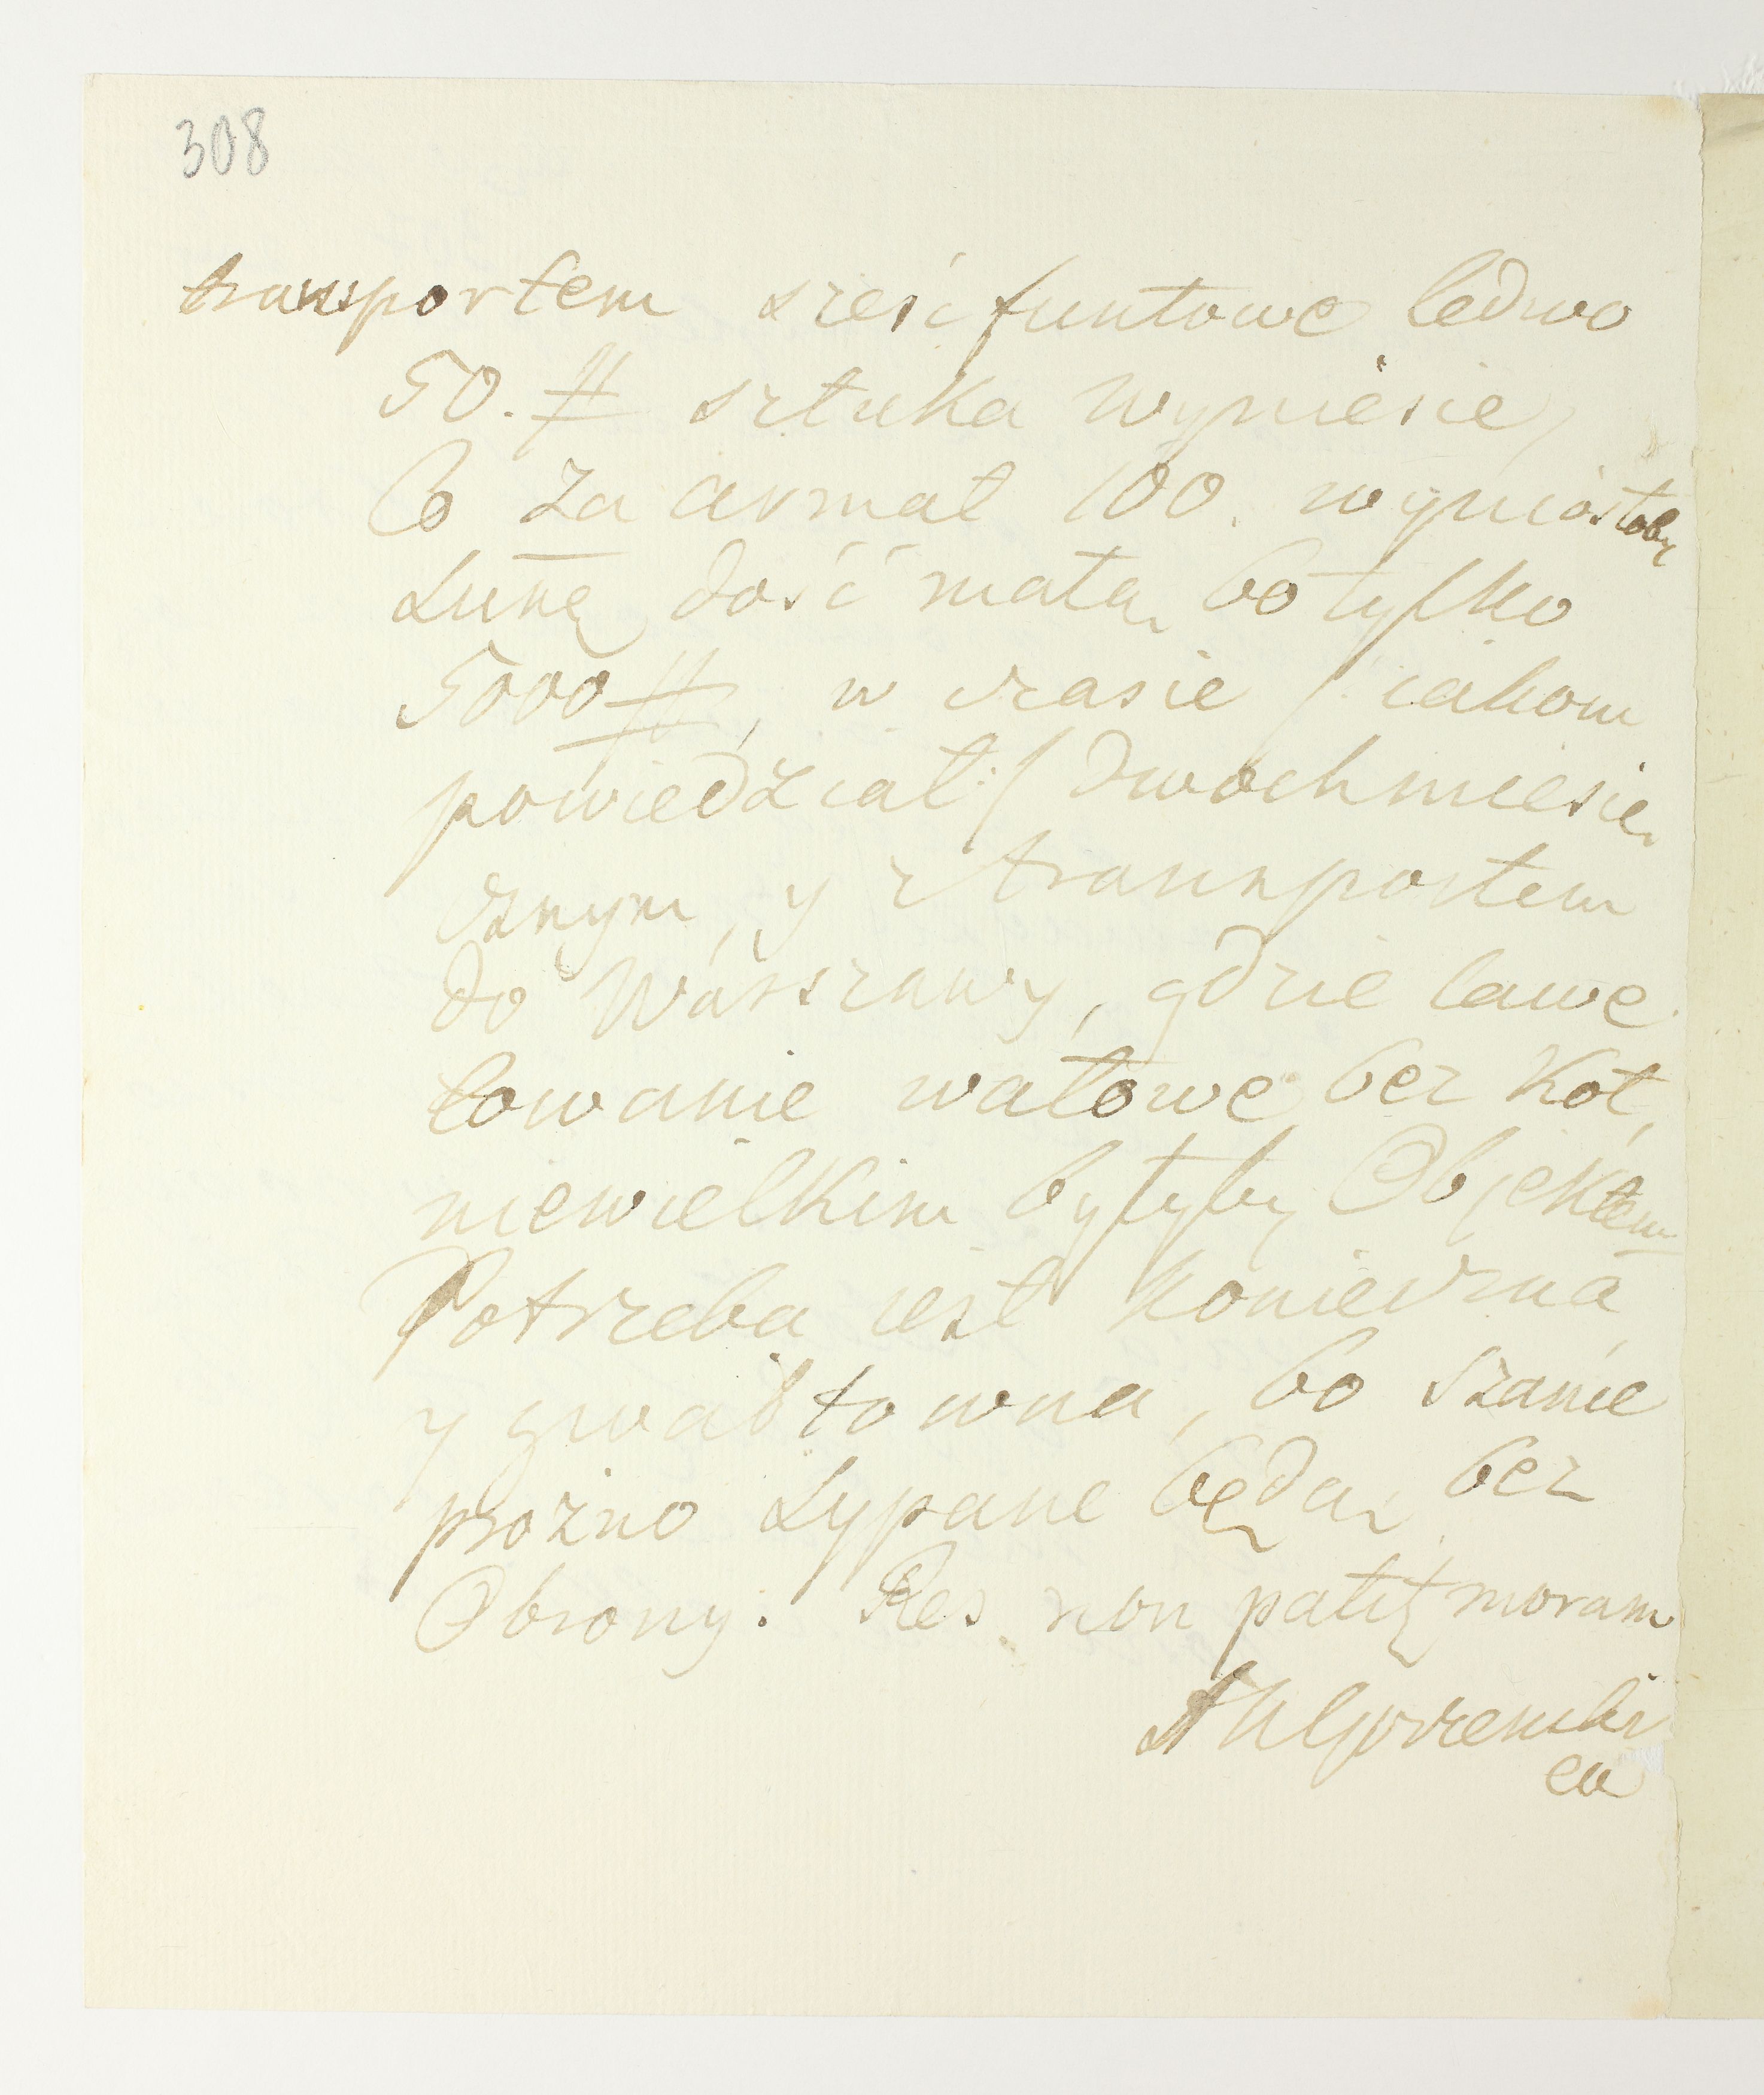 308
transportem sześcfuntowe ledwo
50. # sztuka wyniesie,
Co za armat 100. wyniosłoby
Sumę dość małą bo tylko
5000 #, w czasie /: iakom
powiedział :/ dwochmiesię
cznym, y z transportem
do Warszawy, gdzie lawe
towanie wałowe bez Kół,
niewielkim byłyby Objektem
Potrzeba iest konieczna
y gwałtowna, bo szańce
prożno sypane będą, bez
Obrony. Res non patit moram
AUGorzenski